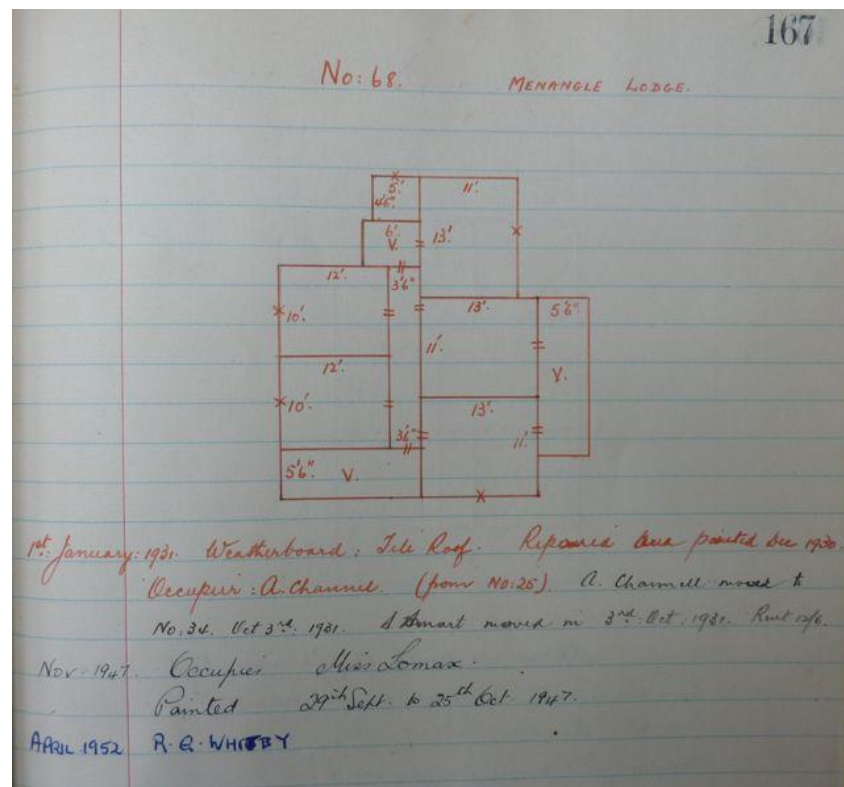 167
No: 68. MENANGLE LODGE.
5'. 11'.
4'6"
6'.
V. 13'.
12'. 3'6"
10'. 13'. 5'6".
11'.
12'. V.
10'. 13'.
3'6" 11'.
5'6". V.
1st: January: 1931. Weatherboard: Tile Roof. Repaired and painted Dec 1930.
Occupier: A. Channel. (from No: 25). A. Channell moved to
No: 34. Oct 3rd: 1931. S Smart moved in 3rd: Oct: 1931. Rent 12/6.
Nov. 1947. Occupier Miss Lomax.
Painted 29th Sept. to 25th Oct. 1947.
APRIL 1952 R. WHITBY